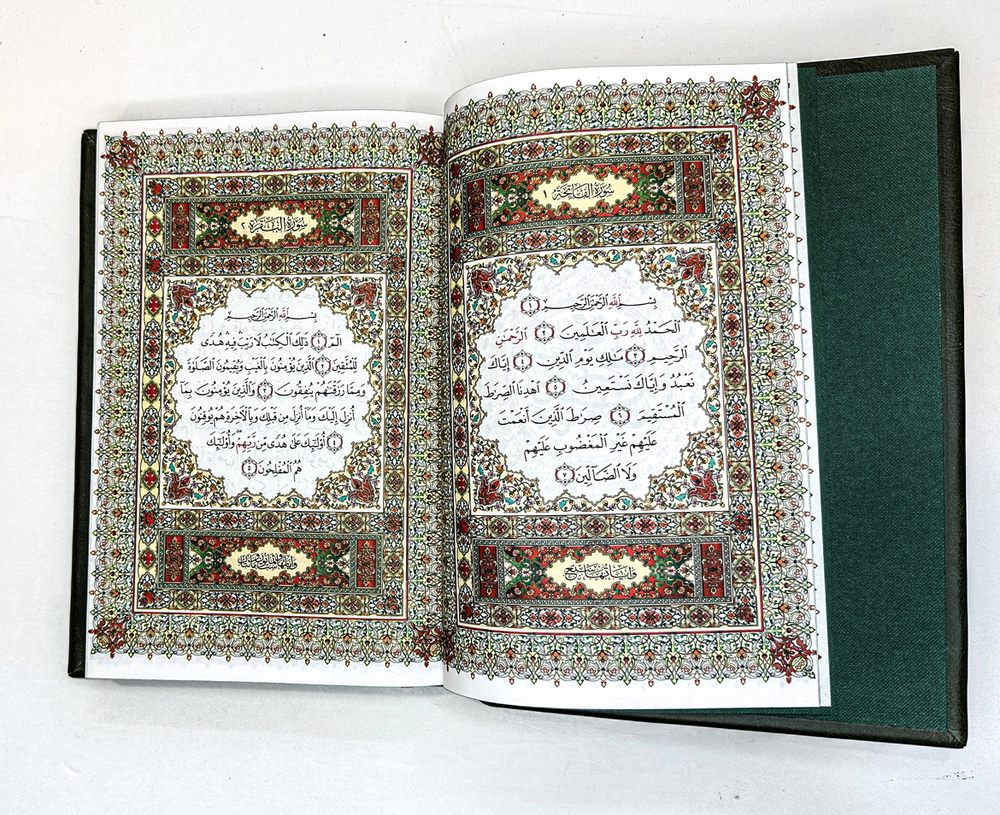 سُورَةُ الفَاتِحَةِ ١
بِسْمِ اللَّهِ الرَّحْمَٰنِ الرَّحِيمِ ١
الْحَمْدُ لِلَّهِ رَبِّ الْعَٰلَمِينَ ٢ الرَّحْمَٰنِ
الرَّحِيمِ ٣ مَٰلِكِ يَوْمِ الدِّينِ ٤ إِيَّاكَ
نَعْبُدُ وَإِيَّاكَ نَسْتَعِينُ ٥ اهْدِنَا الصِّرَٰطَ
الْمُسْتَقِيمَ ٦ صِرَٰطَ الَّذِينَ أَنْعَمْتَ
عَلَيْهِمْ غَيْرِ الْمَغْضُوبِ عَلَيْهِمْ
وَلَا الضَّالِّينَ ٧
وَآيَاتُهَا سَبْعٌ
سُورَةُ البَقَرَةِ ٢
بِسْمِ اللَّهِ الرَّحْمَٰنِ الرَّحِيمِ
الٓمٓ ١ ذَٰلِكَ الْكِتَٰبُ لَا رَيْبَ فِيهِ هُدًى
لِّلْمُتَّقِينَ ٢ الَّذِينَ يُؤْمِنُونَ بِالْغَيْبِ وَيُقِيمُونَ الصَّلَوٰةَ
وَمِمَّا رَزَقْنَٰهُمْ يُنفِقُونَ ٣ وَالَّذِينَ يُؤْمِنُونَ بِمَا
أُنزِلَ إِلَيْكَ وَمَا أُنزِلَ مِن قَبْلِكَ وَبِالْآخِرَةِ هُمْ يُوقِنُونَ
٤ أُولَٰئِكَ عَلَىٰ هُدًى مِّن رَّبِّهِمْ وَأُولَٰئِكَ
هُمُ الْمُفْلِحُونَ ٥